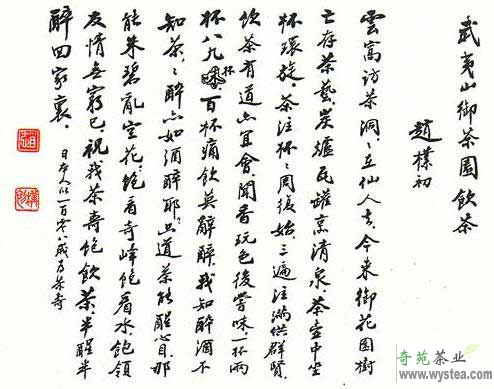 武夷山御茶園飲茶
趙樸初
雲窩訪茶洞〻在仙人去今來御花園樹
亡存茶藝炭爐瓦罐烹清泉茶壺中坐
杯環旋茶注杯〻周復始三遍注滿供群賢
飲茶有道亦宜會聞香玩色後嘗味一杯兩
杯八九杯百杯痛飲莫辭醉我知醉酒不
知茶〻醉亦如酒醉耶只道茶能醒心目那
能朱碧亂空花飽看奇峰飽看水飽領
友情無窮已祝我茶壽飽飲茶半醒半
醉回家裏
日本人以一百零八歲为茶壽
奇苑茶业
www.wystea.com